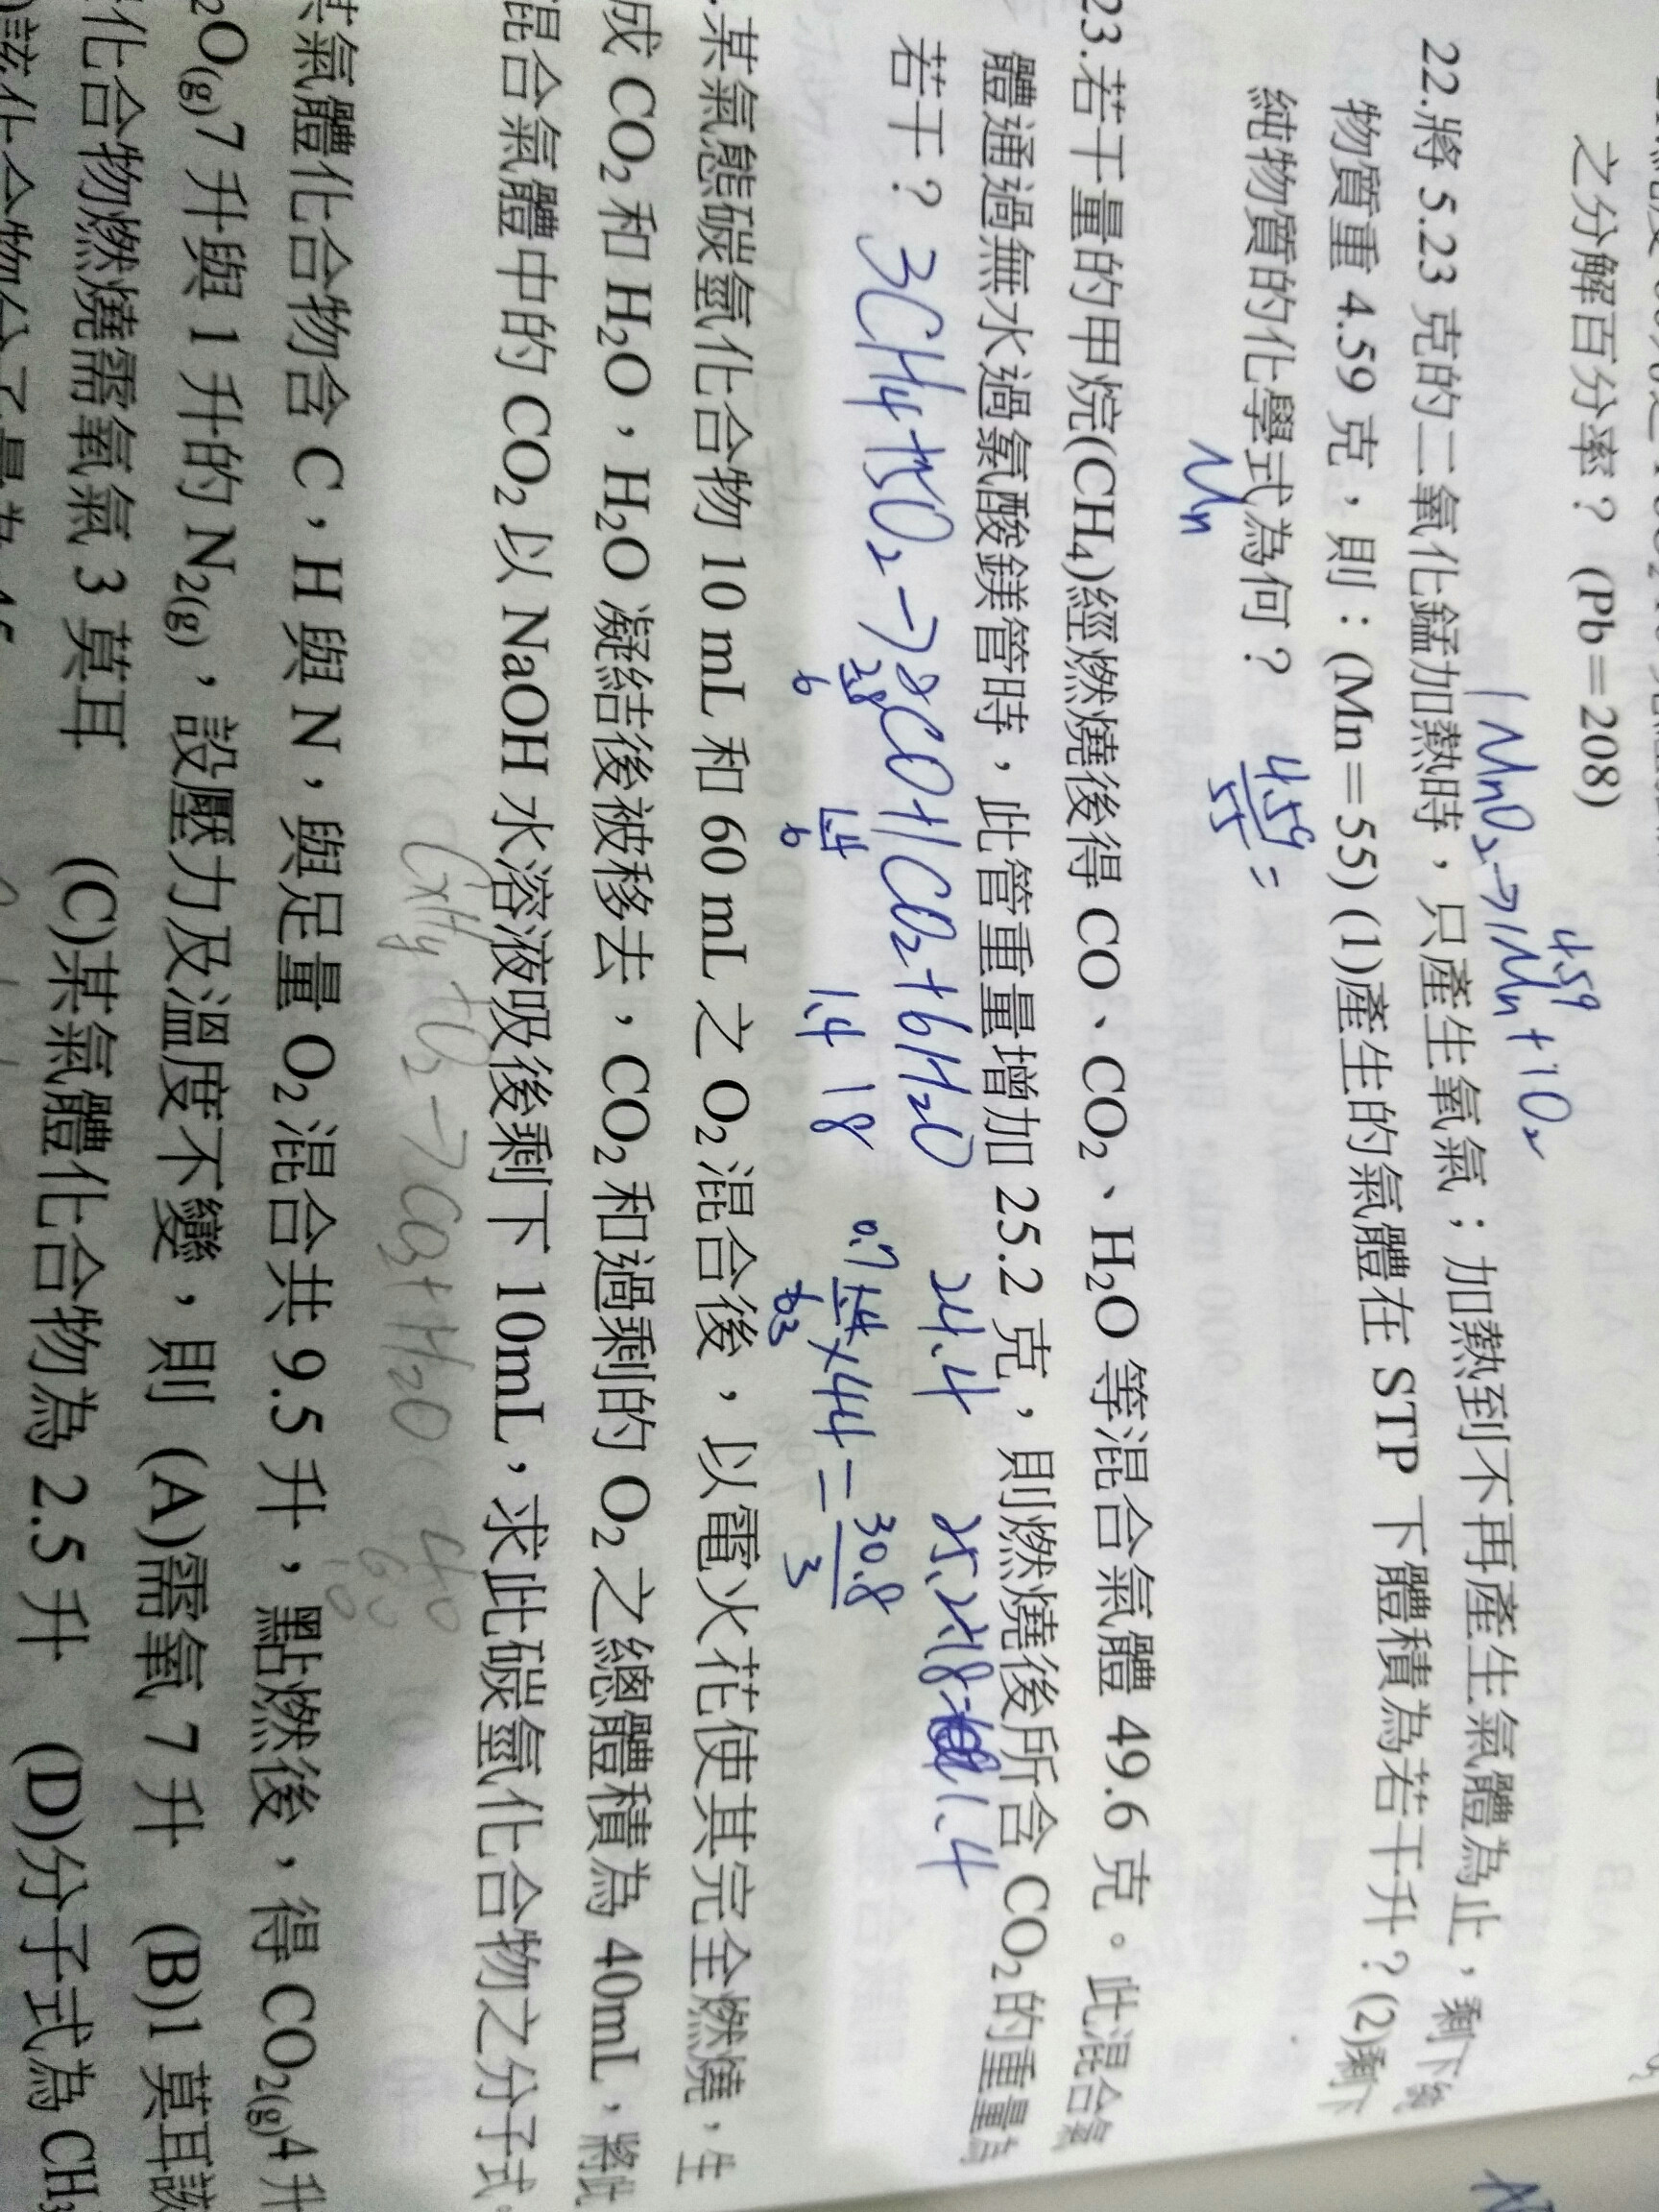 之分解百分率？ (Pb=208)
1MnO₂→1Mn+1O₂
4.59
22.將 5.23 克的二氧化錳加熱時，只產生氧氣；加熱到不再產生氣體為止，剩下純
物質重 4.59 克，則：(Mn=55) (1)產生的氣體在 STP 下體積為若干升？(2)剩下
純物質的化學式為何？
4.59/55=
Mn
23.若干量的甲烷(CH₄)經燃燒後得 CO、CO₂、H₂O 等混合氣體 49.6 克。此混合氣
體通過無水過氯酸鎂管時，此管重量增加 25.2 克，則燃燒後所含 CO₂的重量為
若干？
24.4
3CH₄+5O₂→2CO+1CO₂+6H₂O
1.4
6
1.4 18
0.7
×44=30.8/3
.某氣態碳氫化合物 10 mL 和 60 mL 之 O₂混合後，以電火花使其完全燃燒，生
成 CO₂和 H₂O，H₂O 凝結後被移去，CO₂和過剩的 O₂之總體積為 40mL，將此
混合氣體中的 CO₂以 NaOH 水溶液吸後剩下 10mL，求此碳氫化合物之分子式。
CxHy+O₂→CO₂+H₂O
某氣體化合物含 C，H 與 N，與足量 O₂混合共 9.5 升，點燃後，得 CO₂(g)4 升
₂O(g)7 升與 1 升的 N₂(g)，設壓力及溫度不變，則 (A)需氧 7 升 (B)1 莫耳該
化合物燃燒需氧氣 3 莫耳 (C)某氣體化合物為 2.5 升 (D)分子式為 CH₃